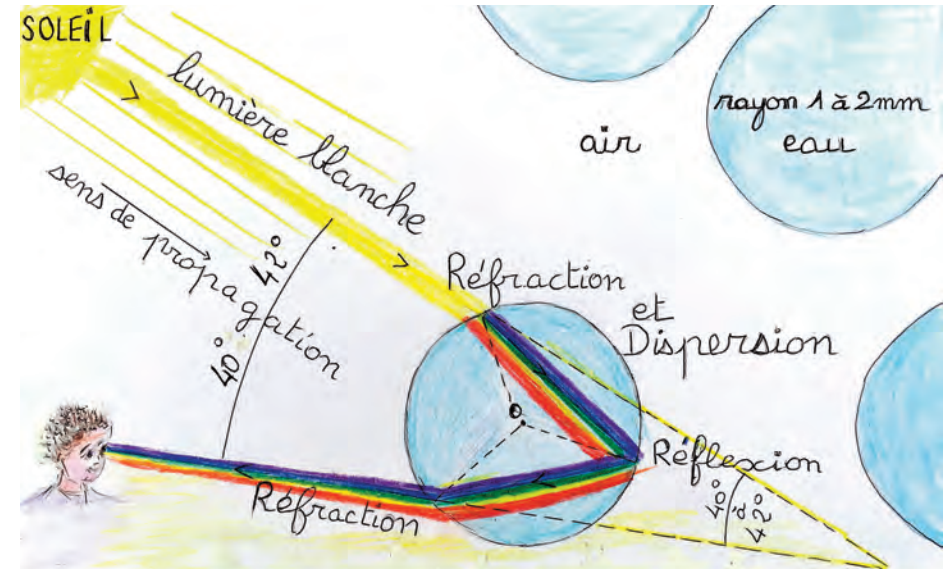 SOLEIL
lumière blanche
sens de propagation
air
rayon 1 à 2mm
eau
42°
40°
Réfraction
et
Dispersion
O
Réflexion
Réfraction
40°
à
42°